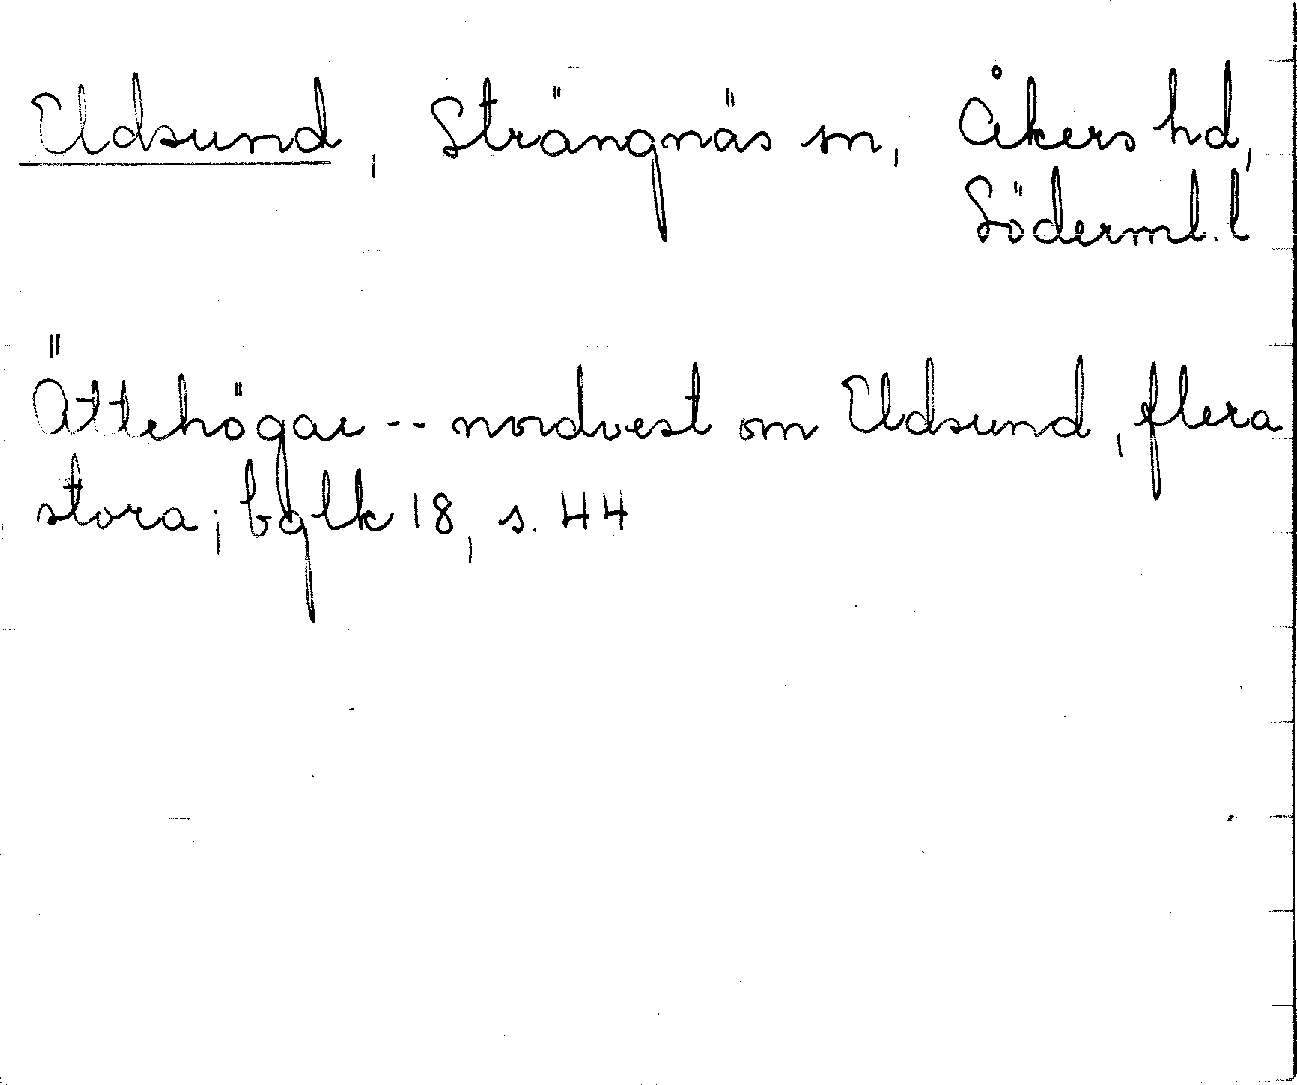 Eldsund, Strängnäs sn, Åkers hd,
Söderml. l
Ättehögar -- nordvest om Eldsund, flera
stora; bglk 18, s. 44